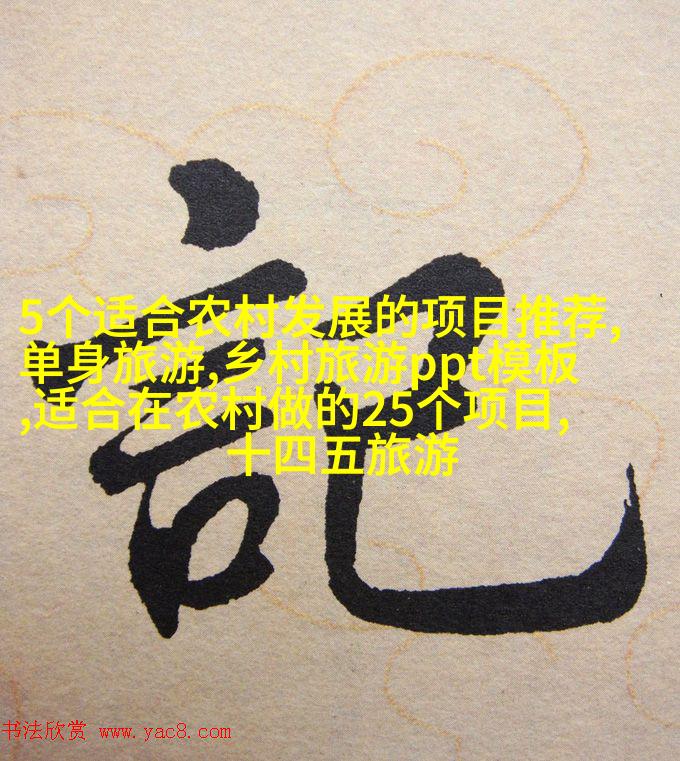 記
5个适合农村发展的项目推荐,
单身旅游,乡村旅游ppt模板
,适合在农村做的25个项目,
十四五旅游
书法欣赏 www.yac8.com